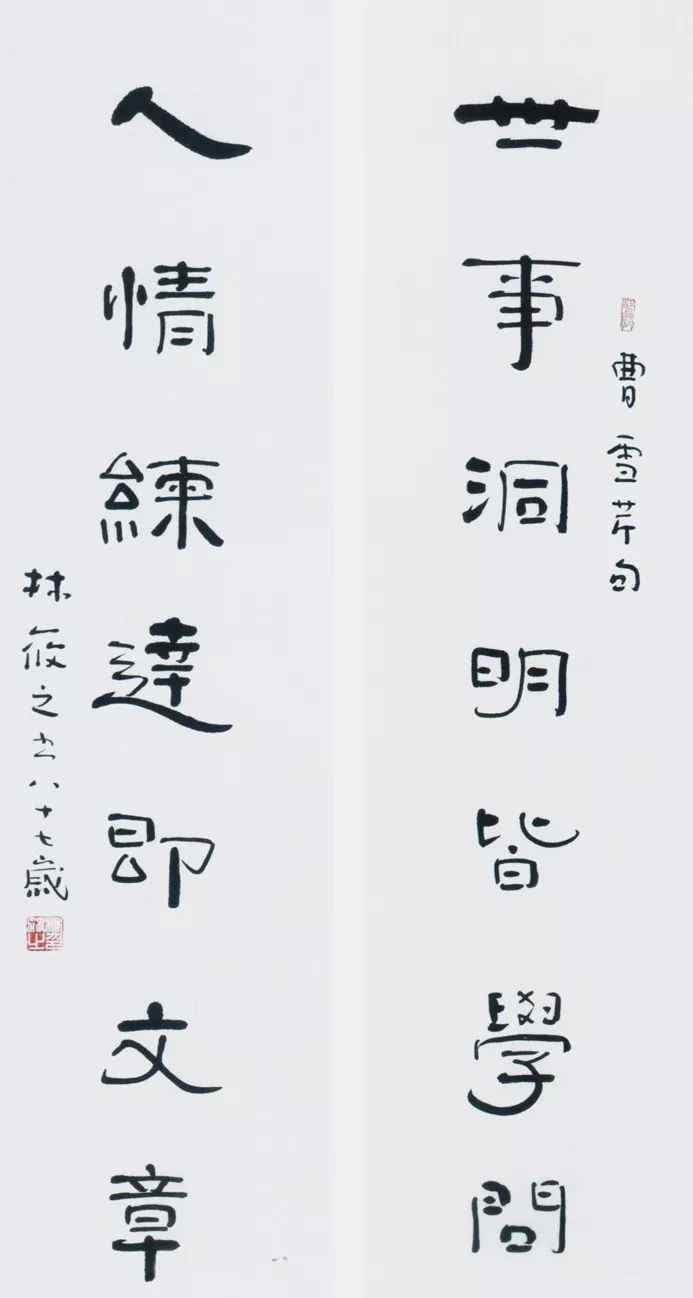 曹雪芹句
世事洞明皆學問
人情練達即文章
林筱之书八十七歲